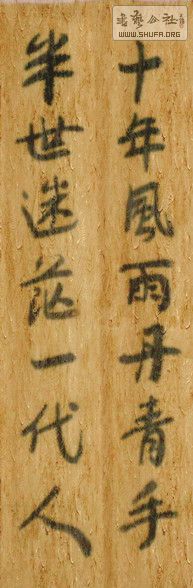 十年風雨丹青手
半世迷茫一代人
書藝公社
WWW.SHUFA.ORG